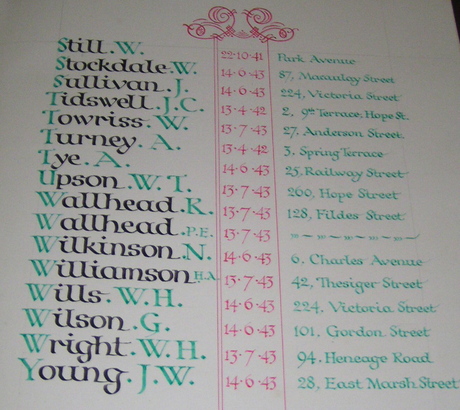 Still. W. 22·10·41 Park Avenue
Stockdale. W. 14·6·43 87, Macaulay Street
Sullivan. J. 14·6·43 224, Victoria Street
Tidswell. J.C. 13·4·42 2. 9th Terrace, Hope St.
Towriss. W. 13·7·43 27, Anderson Street
Turney. A. 13·4·42 3. Spring Terrace
Tye. A. 14·6·43 25, Railway Street
Upson. W. T. 13·7·43 260, Hope Street
Wallhead. K. 13·7·43 128, Fildes Street
Wallhead. P.E. 13·7·43 — " — " — " — " —
Wilkinson. N. 14·6·43 6. Charles Avenue
Williamson H.A. 13·7·43 42, Thesiger Street
Wills. W. H. 14·6·43 224, Victoria Street
Wilson. G. 14·6·43 101. Gordon Street
Wright. W. H. 13·7·43 94. Heneage Road
Young. J. W. 14·6·43 28, East Marsh Street